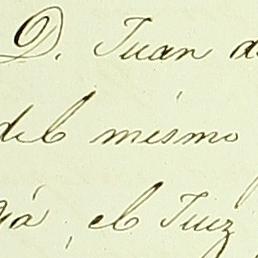 D. Juan d
del mismo
día, el Juez